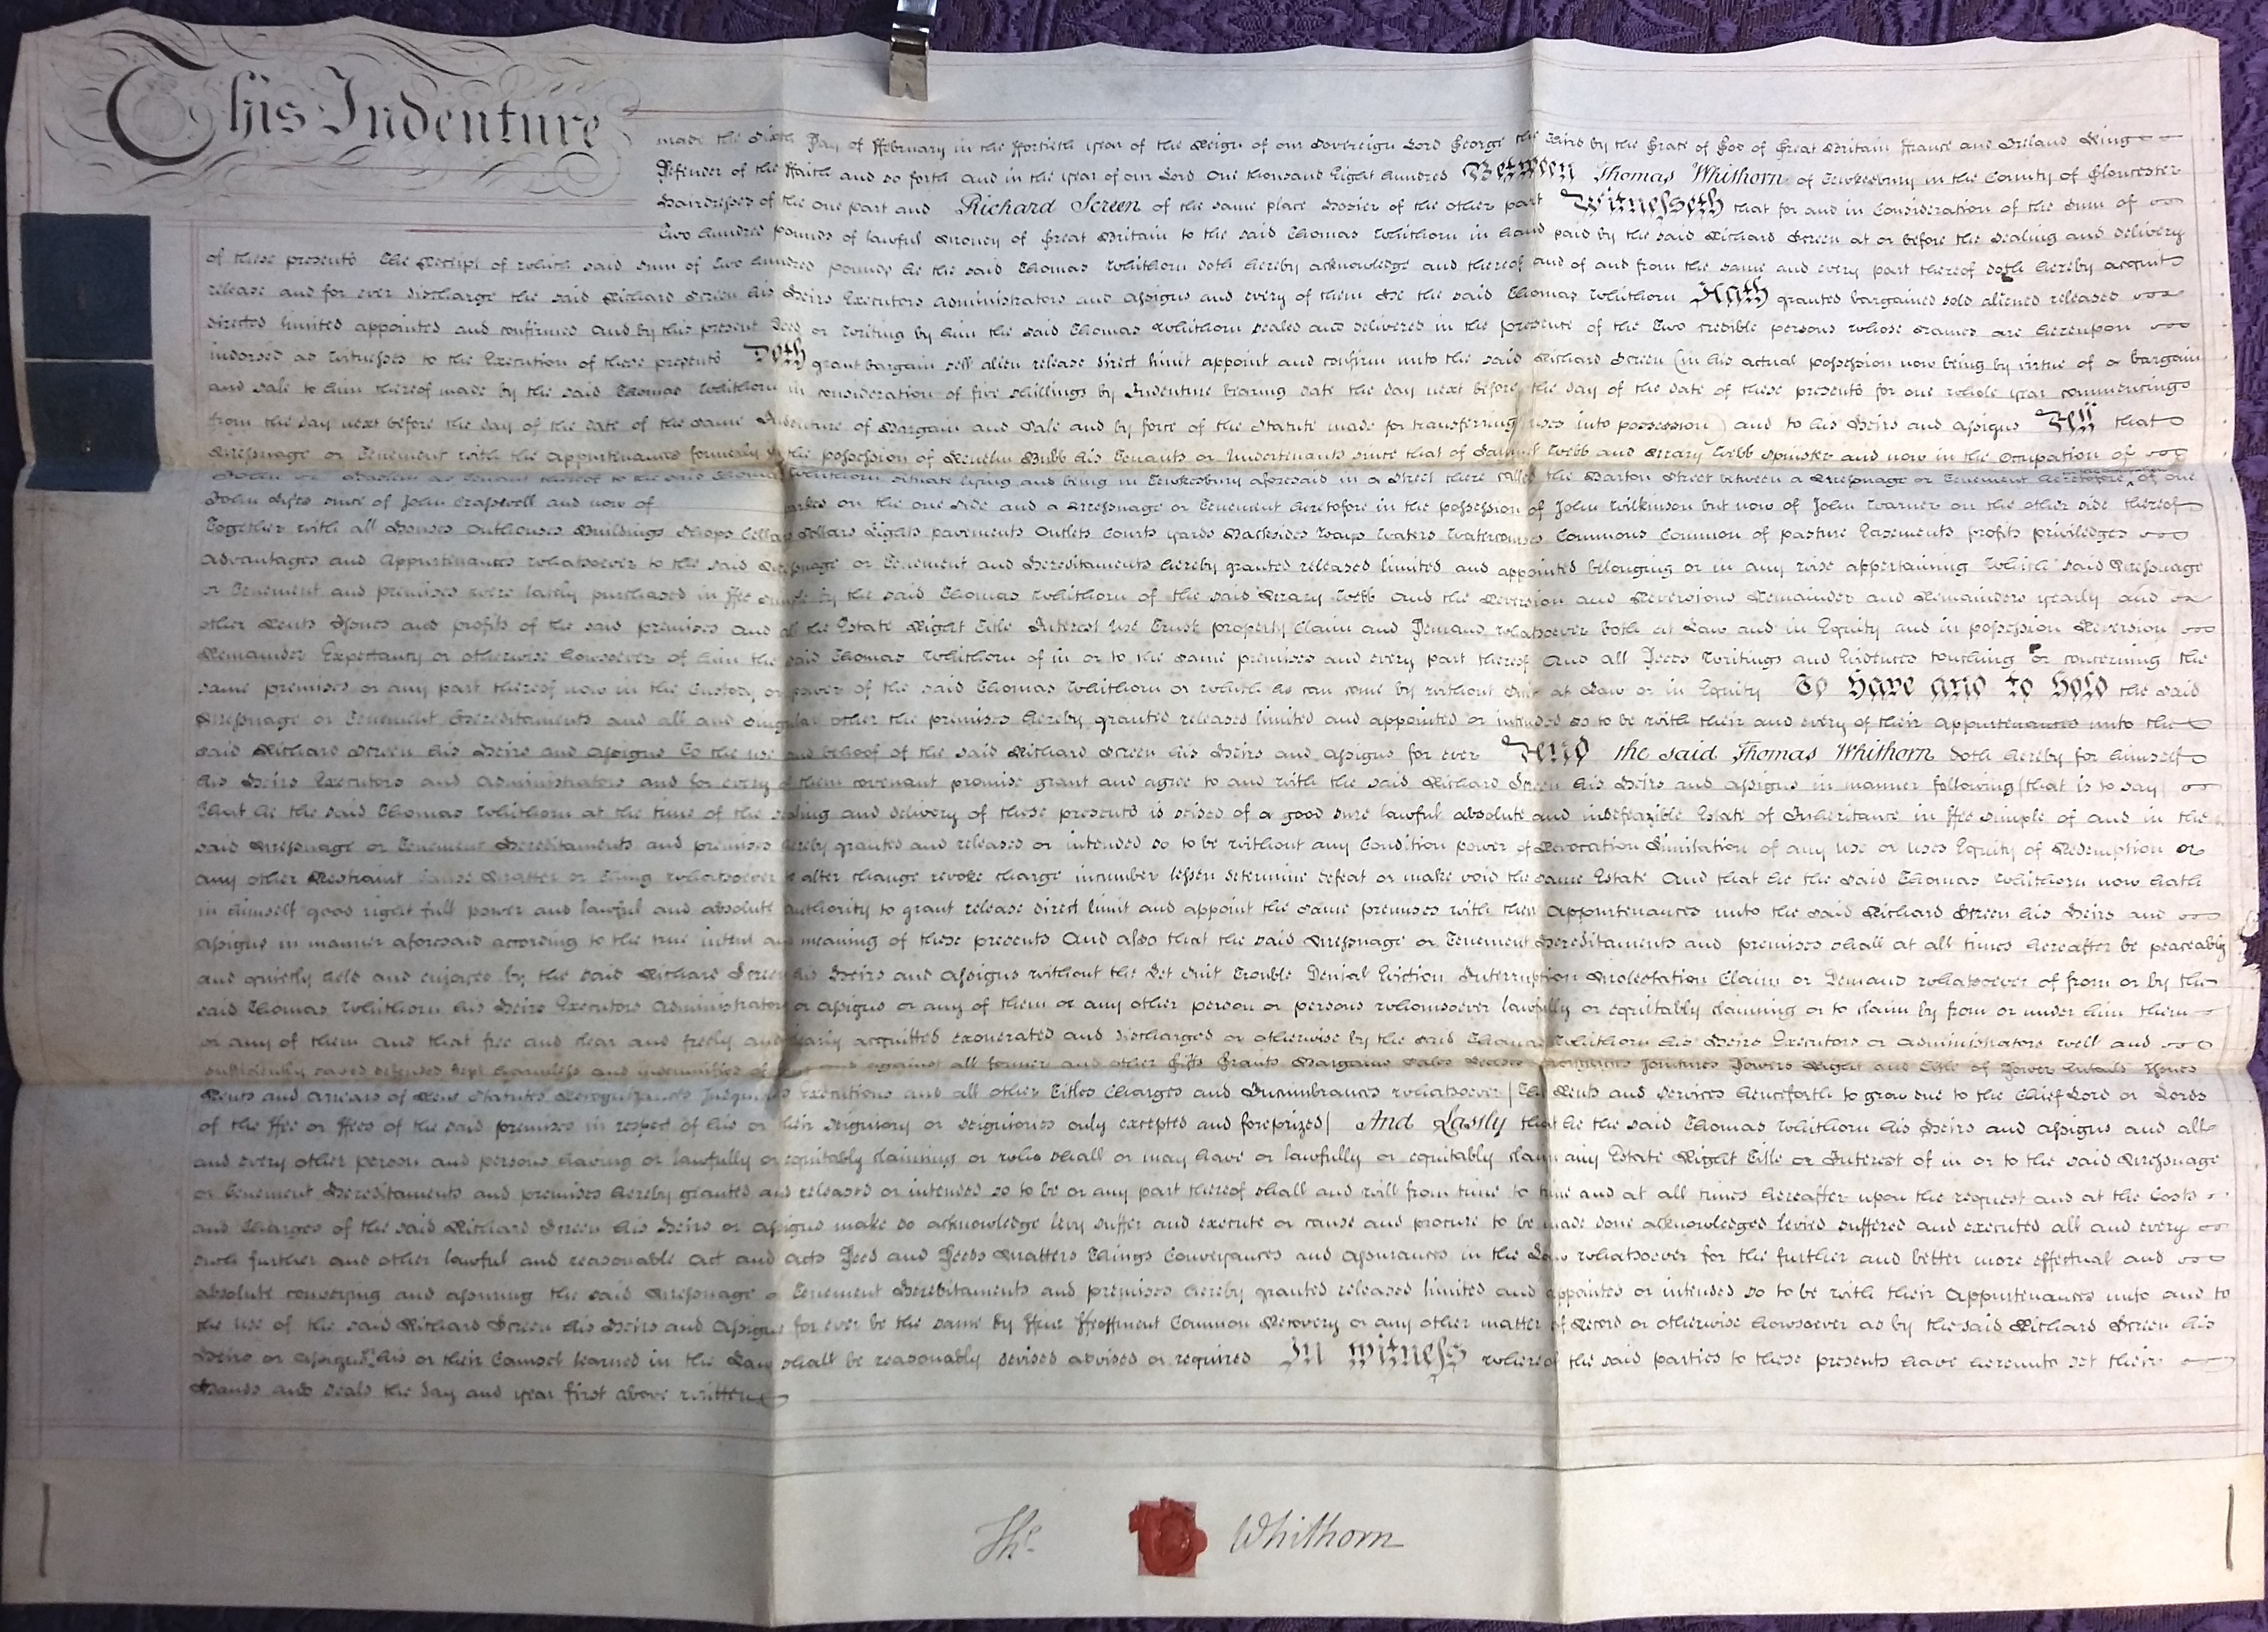 This Indenture
made the Sixth Day of ffebruary in the ffortieth year of the Reign of our Sovereign Lord George the Third by the Grace of God of Great Britain ffrance and Ireland King
Defender of the ffaith and so forth and in the year of our Lord One thousand Eight hundred Between Thomas Whithorn of Tewkesbury in the County of Gloucester
Hairdresser of the one part and Richard Screen of the same place Hosier of the other part Witnesseth that for and in Consideration of the Sum of
Two hundred pounds of lawful Money of Great Britain to the said Thomas Whithorn in hand paid by the said Richard Screen at or before the Sealing and delivery
of these presents The Receipt of which said Sum of Two hundred pounds he the said Thomas Whithorn doth hereby acknowledge and thereof and of and from the same and every part thereof doth hereby acquit
release and for ever discharge the said Richard Screen his Heirs Executors Administrators and Assigns and every of them He the said Thomas Whithorn Hath granted bargained sold aliened released
directed limited appointed and confirmed and by this present Deed or Writing by him the said Thomas Whithorn sealed and delivered in the presence of the Two credible persons whose Names are hereupon
indorsed as Witnesses to the Execution of these presents Doth grant bargain sell alien release direct limit appoint and confirm unto the said Richard Screen (in his actual possession now being by virtue of a bargain
and sale to him thereof made by the said Thomas Whithorn in consideration of five shillings by Indenture bearing date the day next before the day of the date of these presents for one whole year commencing
from the day next before the day of the date of the same Indenture of Bargain and Sale and by force of the Statute made for transferring uses into possession) and to his Heirs and Assigns All that
Messuage or Tenement with the Appurtenances formerly in the possession of Kenelm Bubb his Tenants or Undertenants since that of Samuel Webb and Mary Webb Spinster and now in the Occupation of
as tenant thereof to the said Thomas Whithorn situate lying and being in Tewkesbury aforesaid in a Street there called the Barton Street between a Messuage or Tenement heretofore of one
John since of John Crasswell and now of on the one side and a Messuage or Tenement heretofore in the possession of John Wilkinson but now of John Warner on the other side thereof
Together with all Houses Outhouses Buildings Shops Cellars Sollars Lights pavements Outlets Courts yards Backsides Ways Waters Watercourses Commons Common of pasture Easements profits priviledges
Advantages and Appurtenances whatsoever to the said Messuage or Tenement and Hereditaments hereby granted released limited and appointed belonging or in any wise appertaining Which said Messuage
or Tenement and premises were lately purchased in ffee simple by the said Thomas Whithorn of the said Mary Webb And the Reversion and Reversions Remainder and Remainders yearly and
other Rents Issues and profits of the said premises and all the Estate Right Title Interest Use Trust property Claim and Demand whatsoever both at Law and in Equity and in possession Reversion
Remainder Expectancy or otherwise howsoever of him the said Thomas Whithorn of in or to the same premises and every part thereof And all Deeds Writings and Evidences touching or concerning the
same premises or any part thereof now in the Custody or power of the said Thomas Whithorn or which he can come by without Suit at Law or in Equity To have and to hold the said
Messuage or Tenement Hereditaments and all and singular other the premises hereby granted released limited and appointed or intended so to be with their and every of their Appurtenances unto the
said Richard Screen his Heirs and Assigns To the use and behoof of the said Richard Screen his Heirs and Assigns for ever And the said Thomas Whithorn doth hereby for himself
his Heirs Executors and Administrators and for every of them covenant promise grant and agree to and with the said Richard Screen his Heirs and Assigns in manner following (that is to say)
That he the said Thomas Whithorn at the time of the sealing and delivery of these presents is seised of a good sure lawful absolute and indefeazible Estate of Inheritance in ffee simple of and in the
said Messuage or Tenement Hereditaments and premises hereby granted and released or intended so to be without any Condition power of Revocation Limitation of any use or uses Equity of Redemption or
any other Restraint Cause Matter or Thing whatsoever to alter change revoke charge incumber lessen determine defeat or make void the same Estate And that he the said Thomas Whithorn now hath
in himself good right full power and lawful and absolute authority to grant release direct limit and appoint the same premises with their Appurtenances unto the said Richard Screen his Heirs and
Assigns in manner aforesaid according to the true intent and meaning of these presents And also that the said Messuage or Tenement Hereditaments and premises shall at all times hereafter be peaceably
and quietly held and enjoyed by the said Richard Screen his Heirs and Assigns without the Let Suit Trouble Denial Eviction Interruption Molestation Claim or Demand whatsoever of from or by the
said Thomas Whithorn his Heirs Executors Administrators or Assigns or any of them or any other person or persons whomsoever lawfully or equitably claiming or to claim by from or under him them
or any of them and that free and clear and freely and clearly acquitted exonerated and discharged or otherwise by the said Thomas Whithorn his Heirs Executors or Administrators well and
sufficiently saved defended kept harmless and indemnified of from and against all former and other Gifts Grants Bargains Sales Leases Mortgages Jointures Dowers Right and Title of Dower Entails Issues
Rents and arrears of Rent Statutes Recognizances Judgments Executions and all other Titles Charges and Incumbrances whatsoever (The Rents and Services henceforth to grow due to the Chief Lord or Lords
of the ffee or ffees of the said premises in respect of his or their Seigniory or Seigniories only excepted and foreprized) And Lastly that he the said Thomas Whithorn his Heirs and Assigns and all
and every other person and persons having or lawfully or equitably claiming or who shall or may have or lawfully or equitably claim any Estate Right Title or Interest of in or to the said Messuage
or Tenement Hereditaments and premises hereby granted and released or intended so to be or any part thereof shall and will from time to time and at all times hereafter upon the request and at the Costs
and Charges of the said Richard Screen his Heirs or Assigns make do acknowledge levy suffer and execute or cause and procure to be made done acknowledged levied suffered and executed all and every
such further and other lawful and reasonable Act and Acts Deed and Deeds Matters Things Conveyances and Assurances in the Law whatsoever for the further and better more effectual and
absolute conveying and assuring the said Messuage or Tenement Hereditaments and premises hereby granted released limited and appointed or intended so to be with their Appurtenances unto and to
the use of the said Richard Screen his Heirs and Assigns for ever be the same by ffine ffeoffment Common Recovery or any other matter of Record or otherwise howsoever as by the said Richard Screen his
Heirs or Assigns his or their Counsel learned in the Law shall be reasonably devised advised or required In Witness whereof the said parties to these presents have hereunto set their
Hands and Seals the day and year first above written
Thos. Whithorn